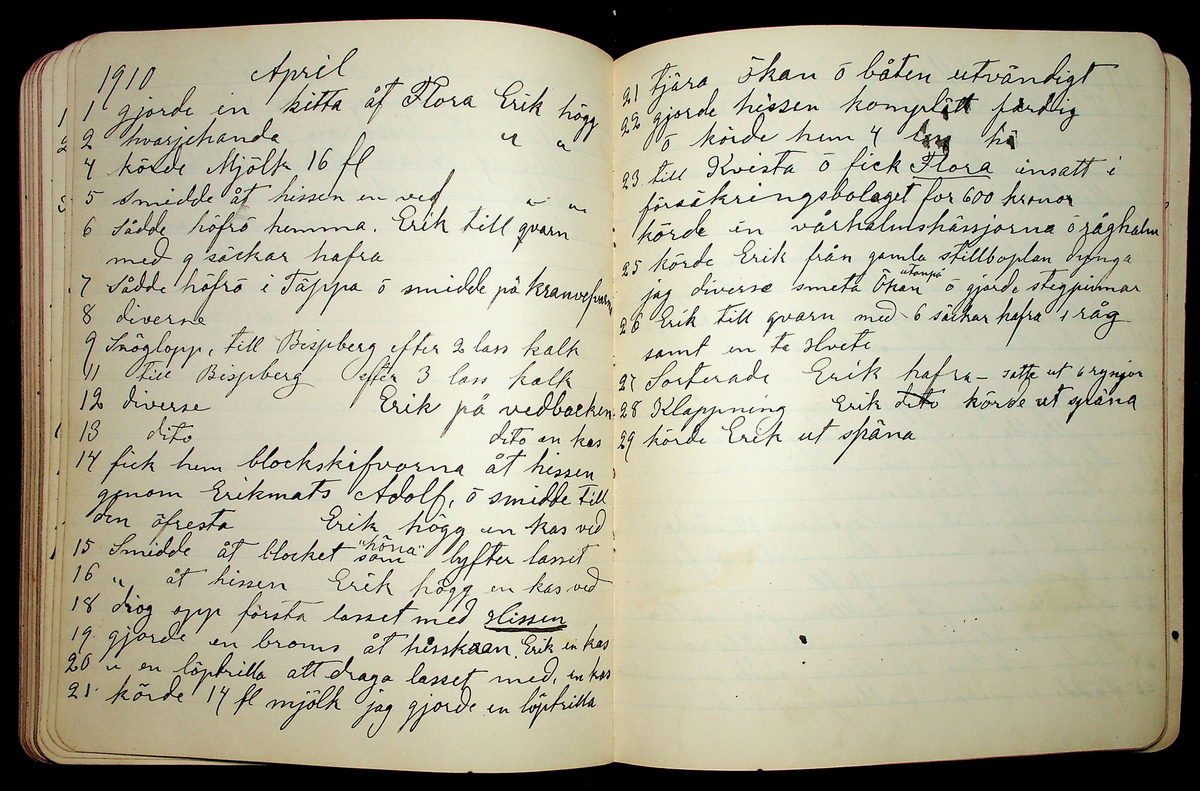 1910 April
1 gjorde in kitta åt Flora Erik högg
2 hvarjehanda " "
4 körde Mjölk 16 fl
5 smidde åt hissen en ved " "
6 sådde höfrö hemma. Erik till qvarn
med 9 säckar hafra
7 sådde höfrö i Täppa ö smidde på
8 diverse
9 Snöglopp, till Bispberg efter 2 lass kalk
11 till Bispberg efter 3 lass kalk
12 diverse Erik på vedbacken
13 dito dito en kas
14 fick hem blockskifvorna åt hissen
genom Erikmats Adolf, ö smidde till
den öfresta Erik högg en kas ved
15 Smidde åt blocket som "höna" lyfter lasset
16 " åt hissen Erik högg en kas ved
18 drog opp första lasset med Hissen
19 gjorde en broms åt hisskran. Erik en kas
20 " en löptrilla att draga lasset med, en kas
21 körde 14 fl mjölk jag gjorde en löptrilla
21 tjära ökan ö båten utvändigt
22 gjorde hissen komplätt färdig
ö körde hem 4 hö
23 till Kvista ö fick Flora insatt i
försäkringsbolaget for 600 kronor
körde in vårhalmshässjorna ö råghalm
25 körde Erik från gamla stillboplan dynga
jag diverse smeta Ökan utanpå ö gjorde stegpinnar
26 Erik till qvarn med 6 säckar hafra 1 råg
samt en ta Hvete
27 Sorterade Erik hafra - satte ut 6 ryngor
28 Klappning Erik dito körde ut späna
29 körde Erik ut späna